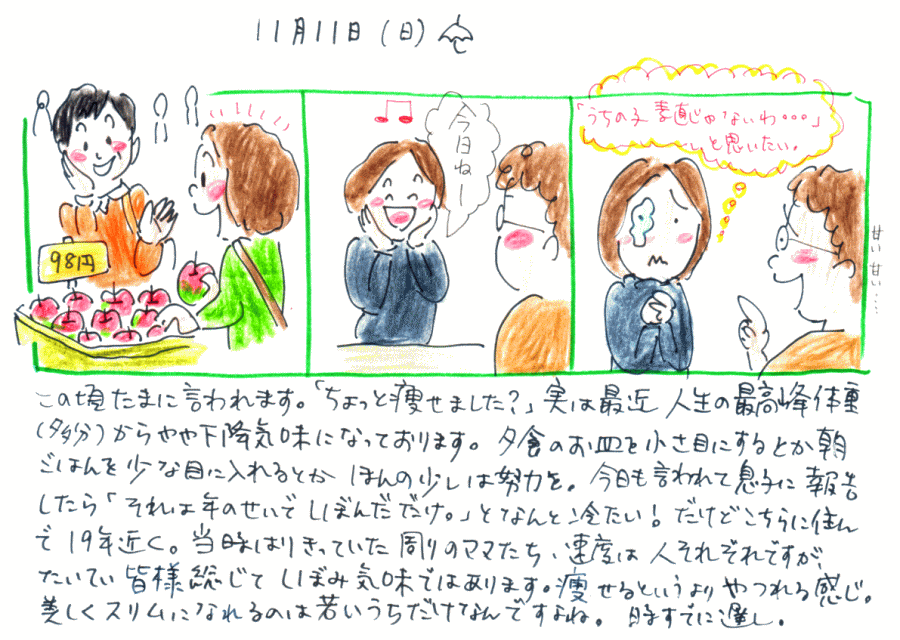 11月11日(日)
98円
今日ねー
「うちの子 素直じゃないわ・・・」
と思いたい。
甘い 甘い・・・
この頃たまに言われます。「ちょっと痩せました?」実は最近 人生の最高峰体重
(多分)からやや下降気味になっております。夕食のお皿を小さ目にするとか朝
ごはんを少な目に入れるとか ほんの少しは努力を。今日も言われて息子に報告
したら「それは年のせいで しぼんだだけ。」となんと冷たい!だけどこちらに住ん
で19年近く。当時はりきっていた周りのママたち、速度は人それぞれですが、
たいてい皆様総じてしぼみ気味ではあります。痩せるというよりやつれる感じ。
美しくスリムになれるのは若いうちだけなんですよね。 時すでに遅し。